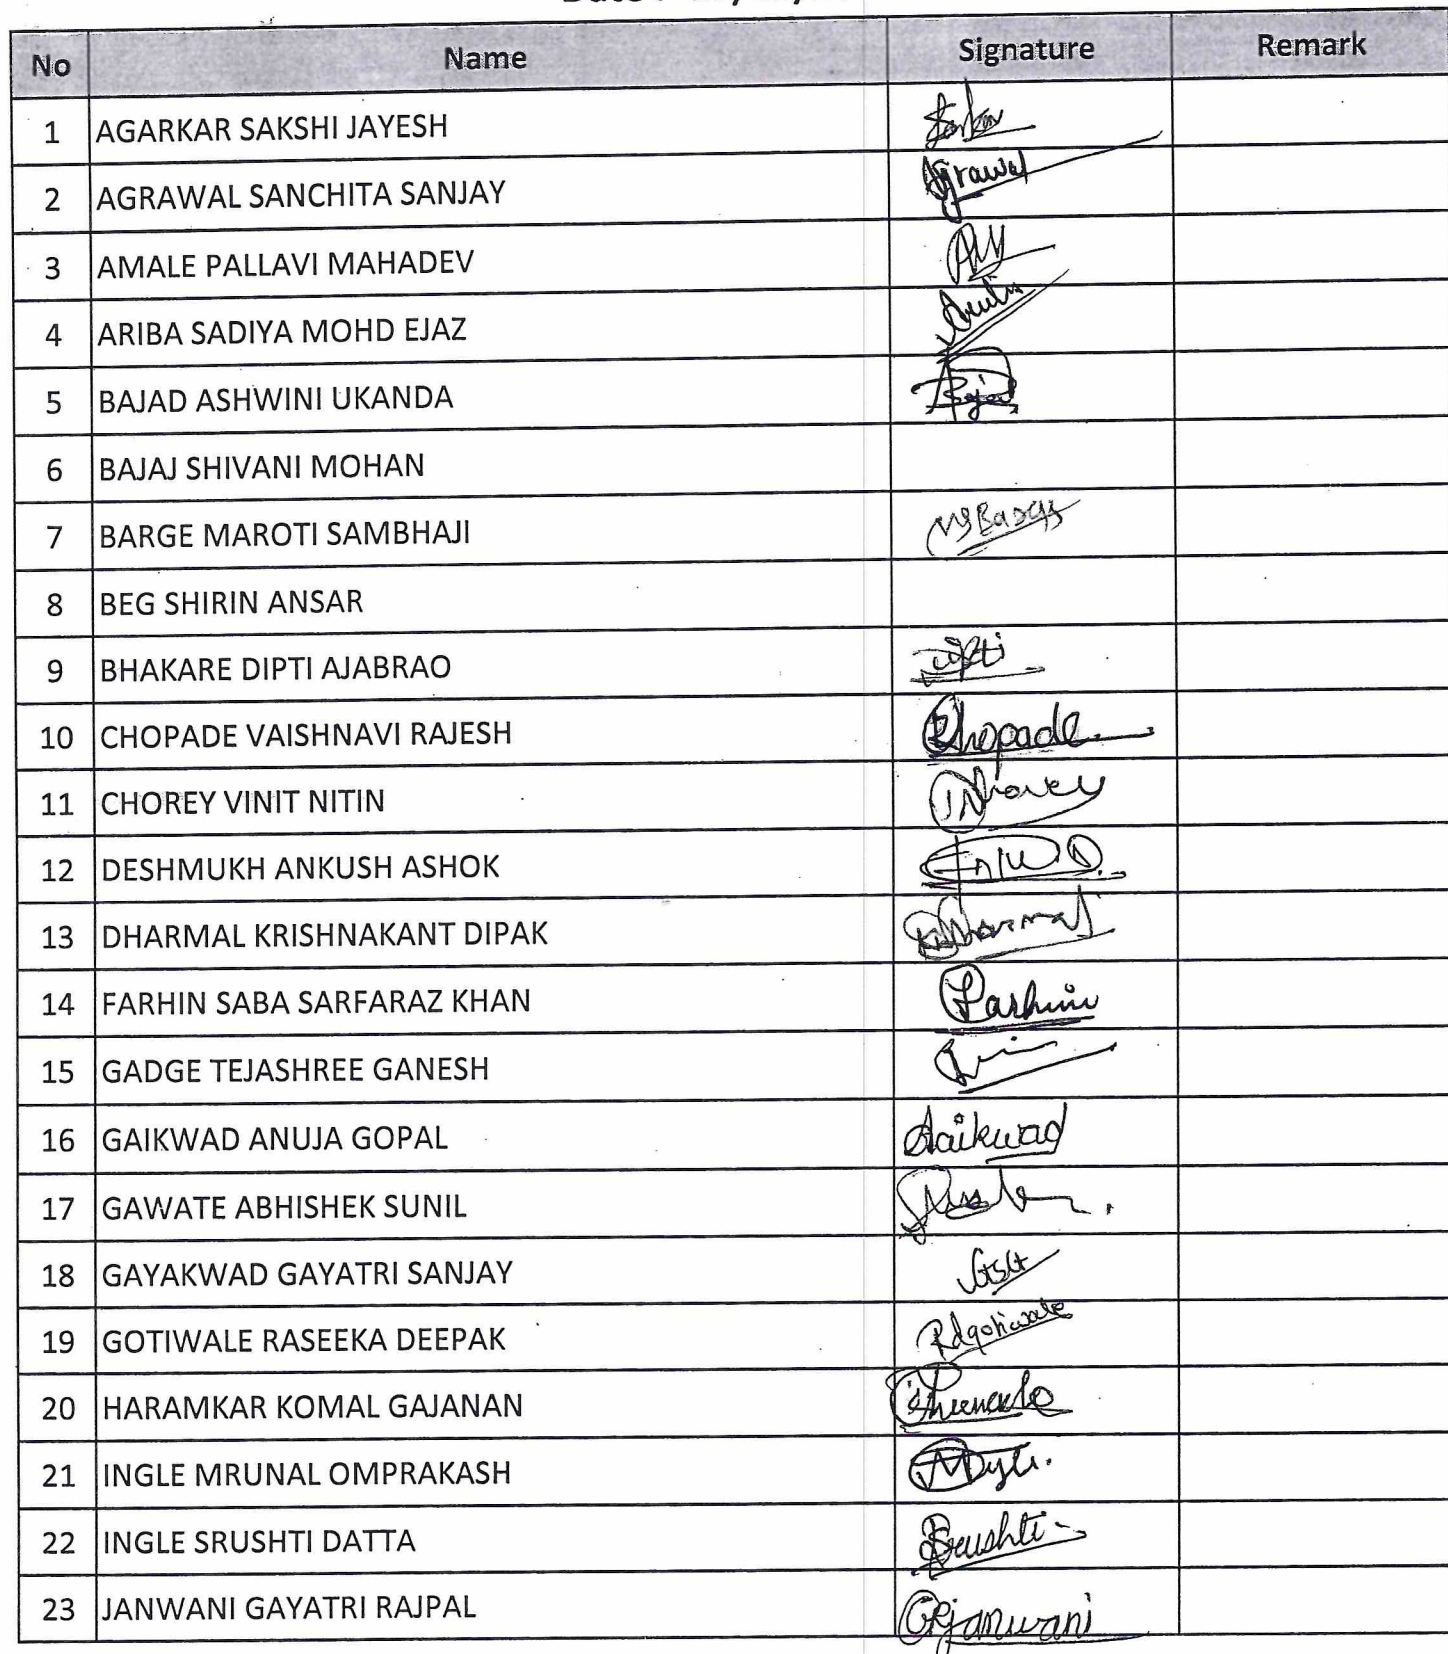 No Name Signature Remark
1 AGARKAR SAKSHI JAYESH
2 AGRAWAL SANCHITA SANJAY Agrawal
3 AMALE PALLAVI MAHADEV
4 ARIBA SADIYA MOHD EJAZ
5 BAJAD ASHWINI UKANDA
6 BAJAJ SHIVANI MOHAN
7 BARGE MAROTI SAMBHAJI
8 BEG SHIRIN ANSAR
9 BHAKARE DIPTI AJABRAO Dipti
10 CHOPADE VAISHNAVI RAJESH Chopade
11 CHOREY VINIT NITIN
12 DESHMUKH ANKUSH ASHOK
13 DHARMAL KRISHNAKANT DIPAK
14 FARHIN SABA SARFARAZ KHAN
15 GADGE TEJASHREE GANESH
16 GAIKWAD ANUJA GOPAL Gaikwad
17 GAWATE ABHISHEK SUNIL
18 GAYAKWAD GAYATRI SANJAY
19 GOTIWALE RASEEKA DEEPAK Rdgotiwale
20 HARAMKAR KOMAL GAJANAN
21 INGLE MRUNAL OMPRAKASH
22 INGLE SRUSHTI DATTA Srushti
23 JANWANI GAYATRI RAJPAL GRJanwani